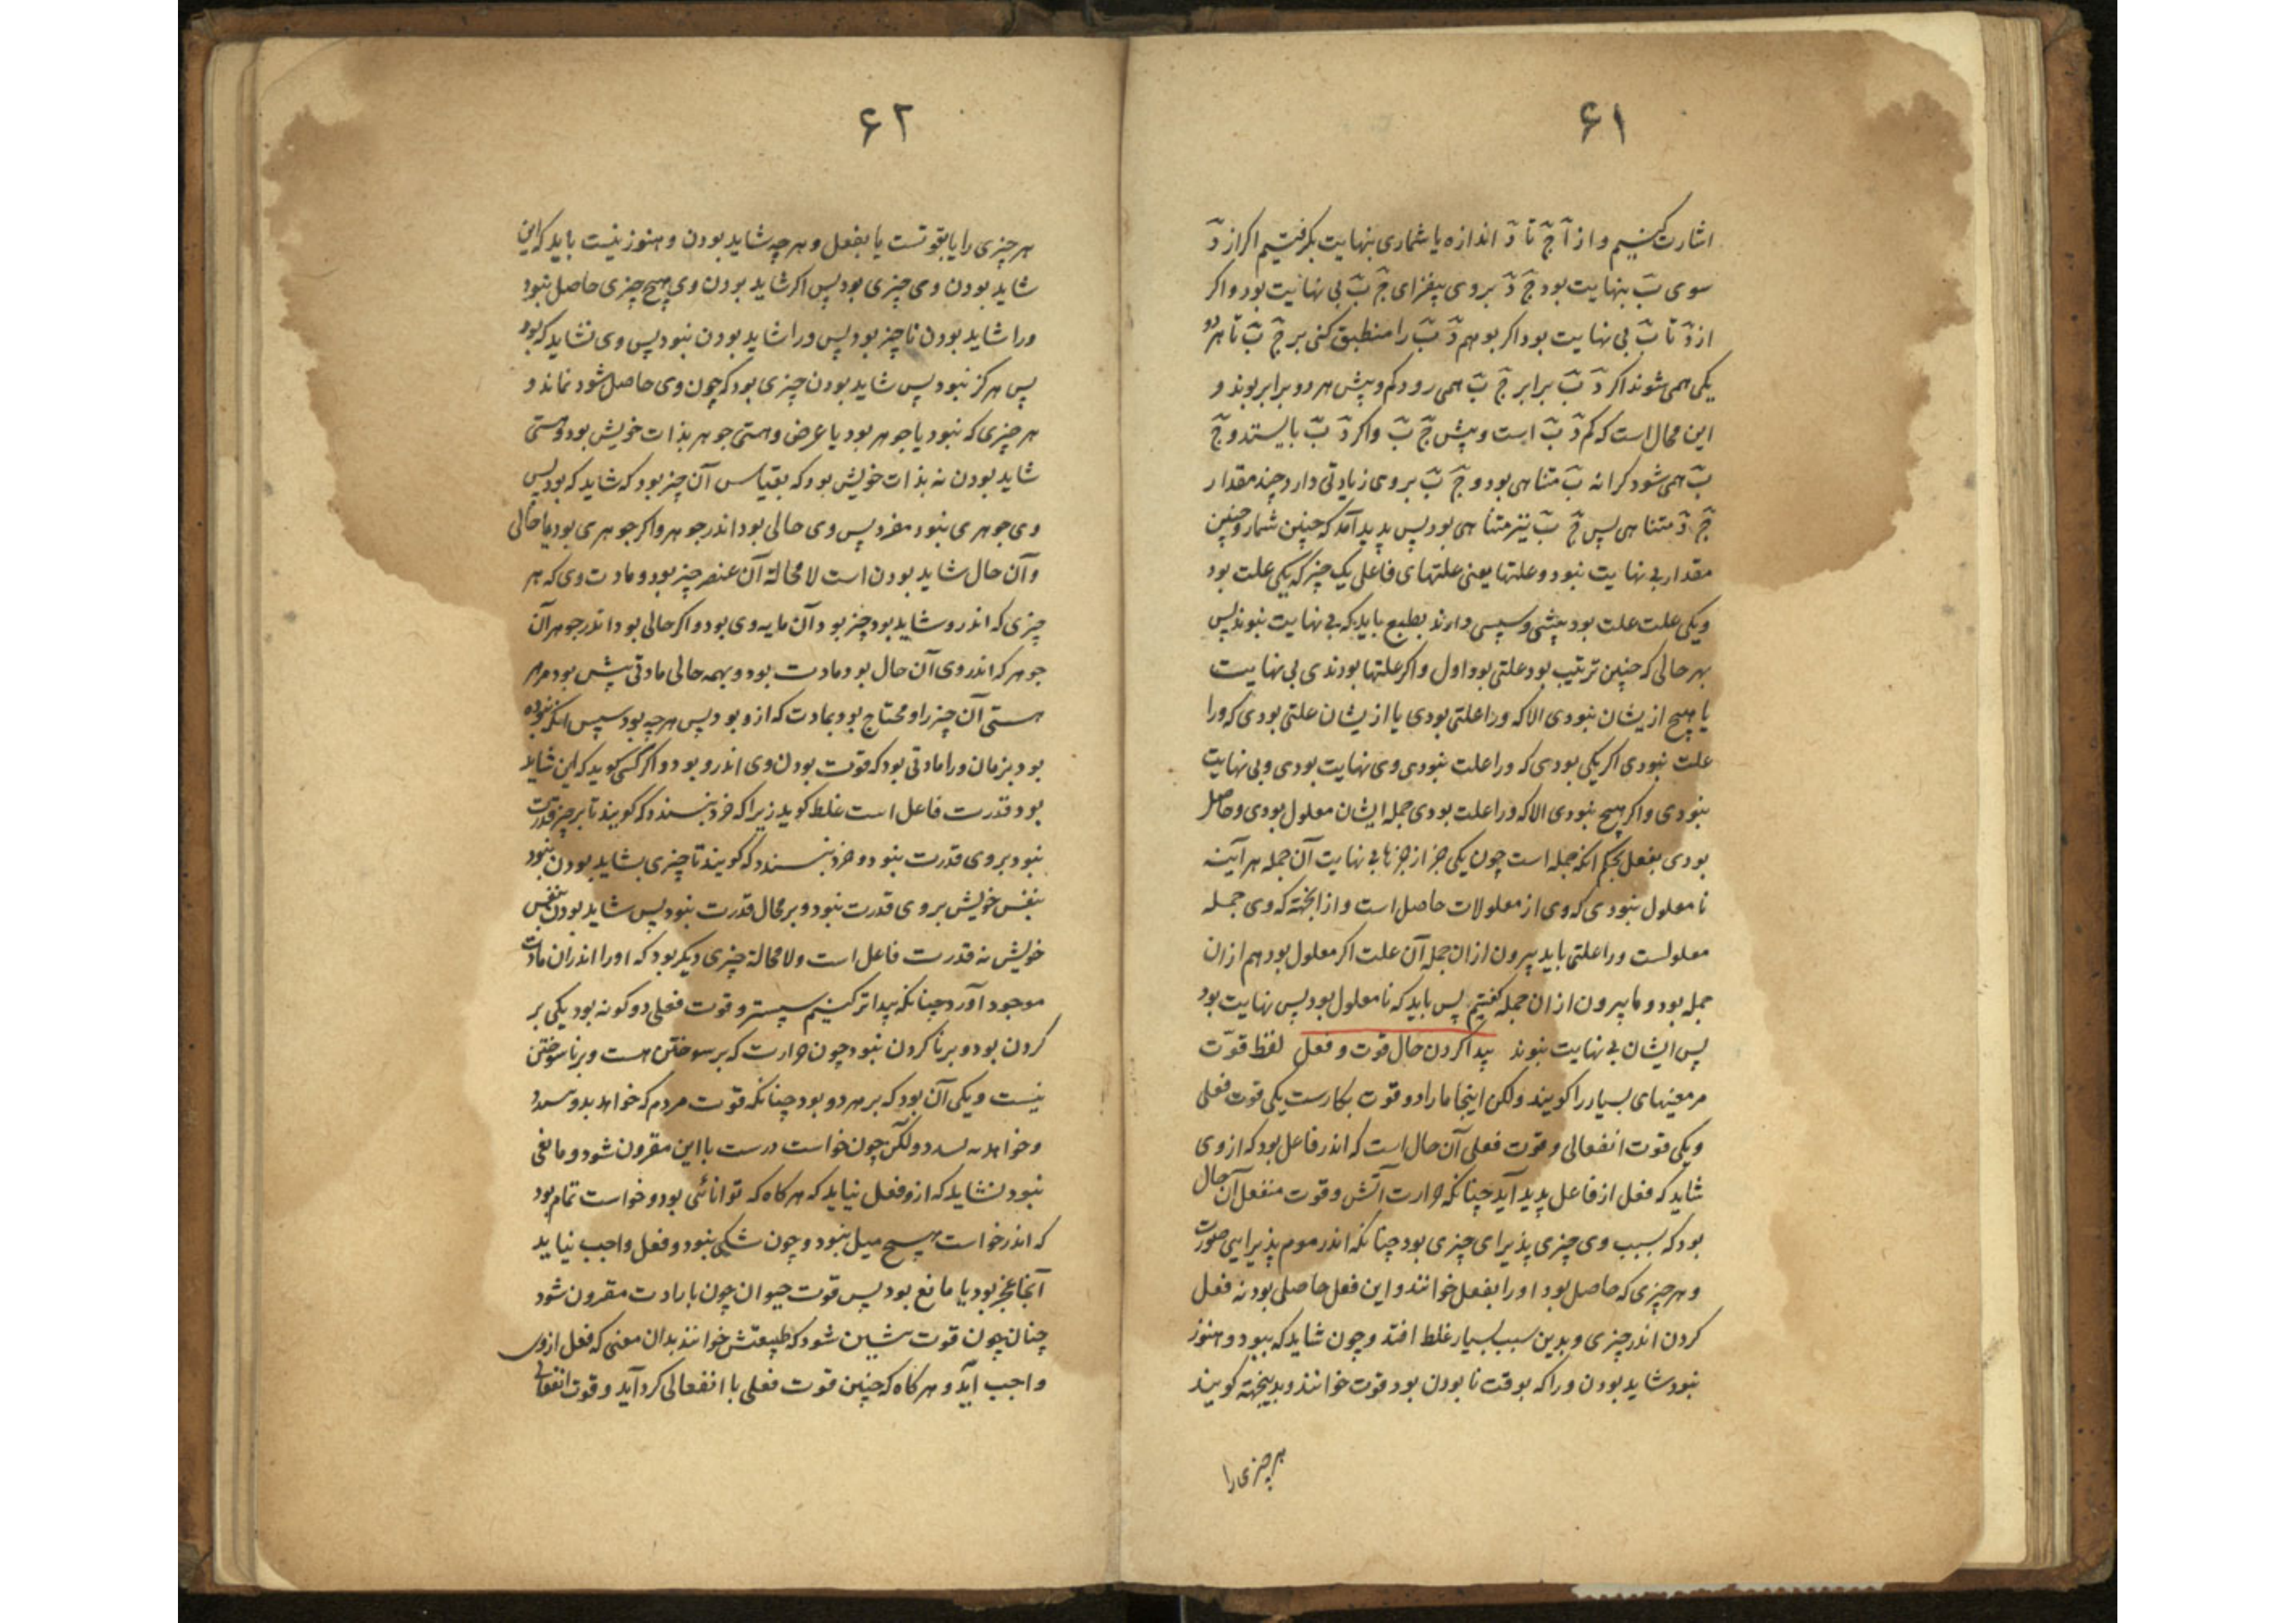 ۶۱
اشارت کنیم و از آ جٓ تا دٓ اندازه یا شماری بنهایت بگرفتیم اکر از دٓ
سوی بٓ بنهایت بود جٓ دٓ بر وی بیفزای جٓ بٓ بی نهایت بود و اکر
از دٓ تا بٓ بی نهایت بود اکر بوهم دٓ بٓ را منطبق کنی بر جٓ بٓ تا هر دو
یکی همی شوند اکر دٓ بٓ برابر جٓ بٓ همی رود کم و بیش هر دو برابر بوند و
این محال است که کم دٓ بٓ است و بیش جٓ بٓ و اکر دٓ بٓ بایستد و جٓ
بٓ همی شود کرانه بٓ متناهی بود و جٓ بٓ بر وی زیادتی دارد چند مقدار
جٓ دٓ متناهی پس جٓ بٓ نیز متناهی بود پس پدید آمد که چنین شمار و چنین
مقدار بی نهایت نبود و علتها یعنی علتهای فاعلی یک چیز که یکی علت بود
و یکی علت علت بود پیشی و سپسی دارند بطبع باید که بی نهایت نبوند پس
بهر حالی که چنین ترتیب بود علتی بود اول و اکر علتها بودندی بی نهایت
یا هیچ از یشان نبودی الا که ورا علتی بودی یا از یشان علتی بودی که ورا
علت نبودی اکر یکی بودی که ورا علت نبودی وی نهایت بودی و بی نهایت
نبودی و اکر هیچ نبودی الا که ورا علت بودی جمله ایشان معلول بودی و حاصل
بودی بفعل بحکم انکه جمله است چون یکی جز از جزها بی نهایت آن جمله هر آینه
نا معلول نبودی که وی از معلولات حاصل است و از انجهة که وی جمله
معلولست ورا علتی باید بیرون از ان جمله آن علت اکر معلول بود هم از ان
جمله بود و ما بیرون از ان جمله کفتیم پس باید که نا معلول بود پس نهایت بود
پس ایشان بی نهایت نبوند پیدا کردن حال قوت و فعل لفظ قوّت
مر معنیهای بسیار را کویند ولکن اینجا ما را دو قوت بکارست یکی قوت فعلی
و یکی قوت انفعالی و قوت فعلی آن حال است که اندر فاعل بود که از وی
شاید که فعل از فاعل پدید آید چنانکه حرارت آتش و قوت منفعل آن حال
بود که بسبب وی چیزی پذیرای چیزی بود چنانکه اندر موم پذیرایی صورت
و هر چیزی که حاصل بود او را بفعل خوانند و این فعل حاصلی بود نه فعل
کردن اندر چیزی و بدین سبب بسیار غلط افتد و چون شاید که ببود و هنوز
نبود شاید بودن ورا که بوقت نا بودن بود قوت خوانند و بدینجهة کویند
هر چیزی را
۶۲
هر چیزی را یا بقوتست یا بفعل و هر چه شاید بودن و هنوز نیست باید که این
شاید بودن وی چیزی بود پس اکر شاید بودن وی هیچ چیزی حاصل نبود
ورا شاید بودن نا چیز بود پس ورا شاید بودن نبود پس وی نشاید که بود
پس هرکز نبود پس شاید بودن چیزی بود که چون وی حاصل شود نماند و
هر چیزی که نبود یا جوهر بود یا عرض و هستی جوهر بذات خویش بود و هستی
شاید بودن نه بذات خویش بود که بقیاس آن چیز بود که شاید که بود پس
وی جوهری نبود مفرد پس وی حالی بود اندر جوهر و اکر جوهری بود با حالی
و آن حال شاید بودن است لا محالة آن عنصر چیز بود و مادت وی که هر
چیزی که اندر و شاید بود چیز بود آن مایه وی بود و اکر حالی بود اندر جوهر آن
جوهر که اندر وی آن حال بود مادت بود و بهمه حالی مادتی پیش بود مر هر
هستی آن چیز را و محتاج بود بمادت که از و بود پس هر چه بود سپس انکه نبوده
بود بزمان ورا مادتی بود که قوت بودن وی اندر و بود و اکر کسی کوید که این شاید
بود قدرت فاعل است غلط کوید زیرا که خرد نپسندد که کویند تا بر چیز قدرت
نبود بر وی قدرت نبود و خرد نپسندد که کویند تا چیزی بشاید بودن نبود
بنفس خویش بر وی قدرت نبود و بر محال قدرت نبود پس شاید بودن بنفس
خویش نه قدرت فاعل است و لا محالة چیزی دیکر بود که او را اندران مادت
موجود آورد چنانکه پیداتر کنیم سپستر و قوت فعلی دو کونه بود یکی بر
کردن بود و بر نا کردن نبود چون حرارت که بر سوختن هست و بر نا سوختن
نیست و یکی آن بود که بر هر دو بود چنانکه قوت مردم که خواهد بدوسد
و خواهد نه بسد ولکن چون خواست درست با این مقرون شود و مانعی
نبود نشاید که از و فعل نیاید که هر کاه که توانائی بود و خواست تمام بود
که اندر خواست هیچ میل نبود و چون شکی نبود و فعل واجب نیاید
آنجا عجز بود یا مانع بود پس قوت حیوان چون بارادت مقرون شود
چنان چون قوت پیشین شود که طبیعتش خوانند بدان معنی که فعل از وی
واجب آید و هر کاه که چنین قوت فعلی با انفعالی کرد آید و قوت انفعالی